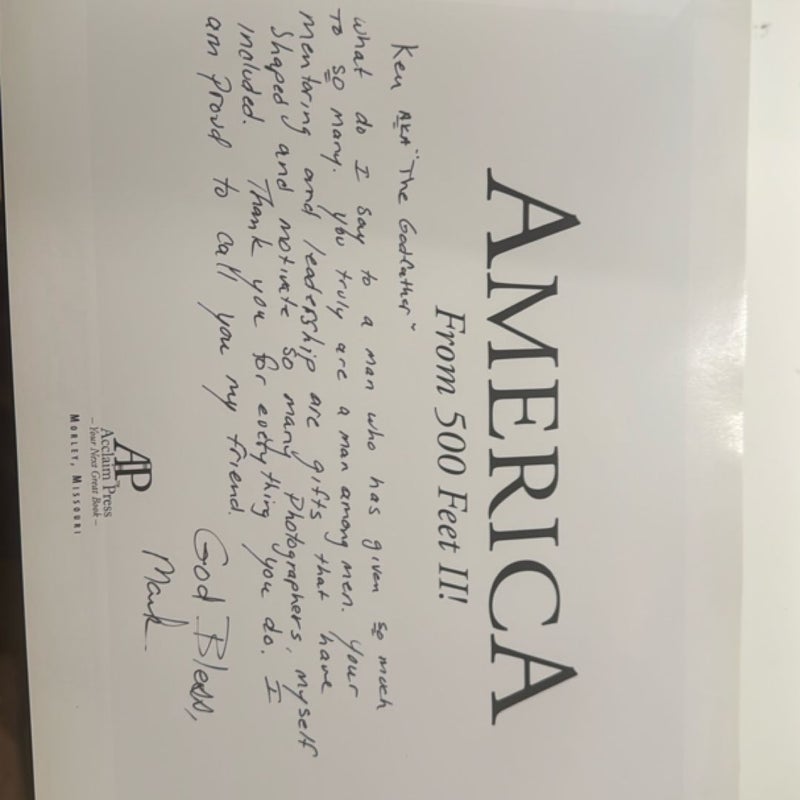 AMERICA
From 500 Feet II!
Ken AKA "The Godfather"
What do I say to a man who has given so much
To so many. You truly are a man among men. Your
mentoring and leadership are gifts that have
Shaped and motivate so many photographers, myself
included. Thank you for everything you do. I
am proud to call you my friend.
God Bless,
Mark
AP
Acclaim Press
– Your Next Great Book –
MORLEY, MISSOURI